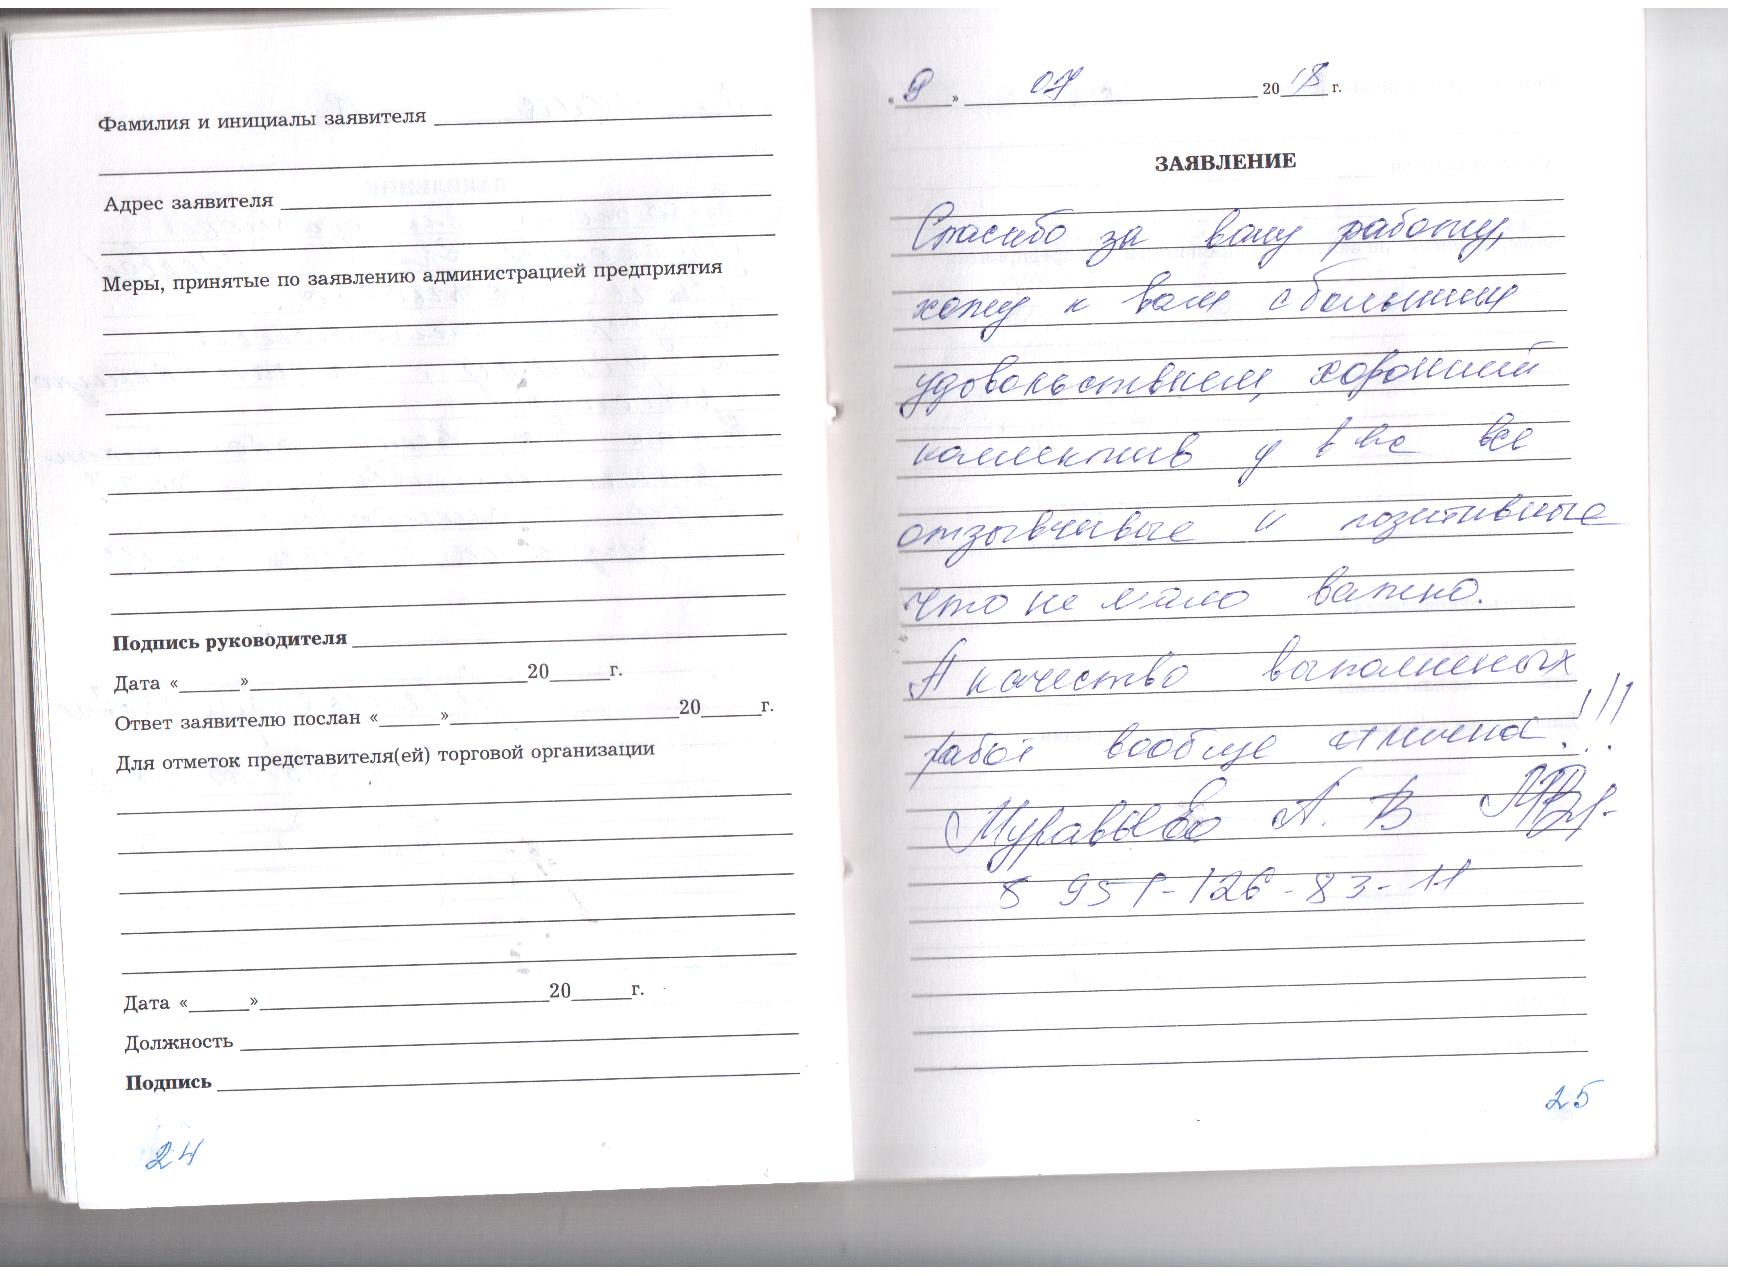 Фамилия и инициалы заявителя
Адрес заявителя
Меры, принятые по заявлению администрацией предприятия
Подпись руководителя
Дата «______»____________20______г.
Ответ заявителю послан «______»____________20______г.
Для отметок представителя(ей) торговой организации
Дата «______»____________20______г.
Должность
Подпись
24
«9» 07 2018 г.
ЗАЯВЛЕНИЕ
Спасибо за вашу работу,
хожу к вам с большим
удовольствием, хороший
коллектив у вас все
отзывчивые и позитивные
что не мало важно.
А качество выполненых
работ вообще отлично!!!
Муравьева А. В
8 951-126-83-11
25